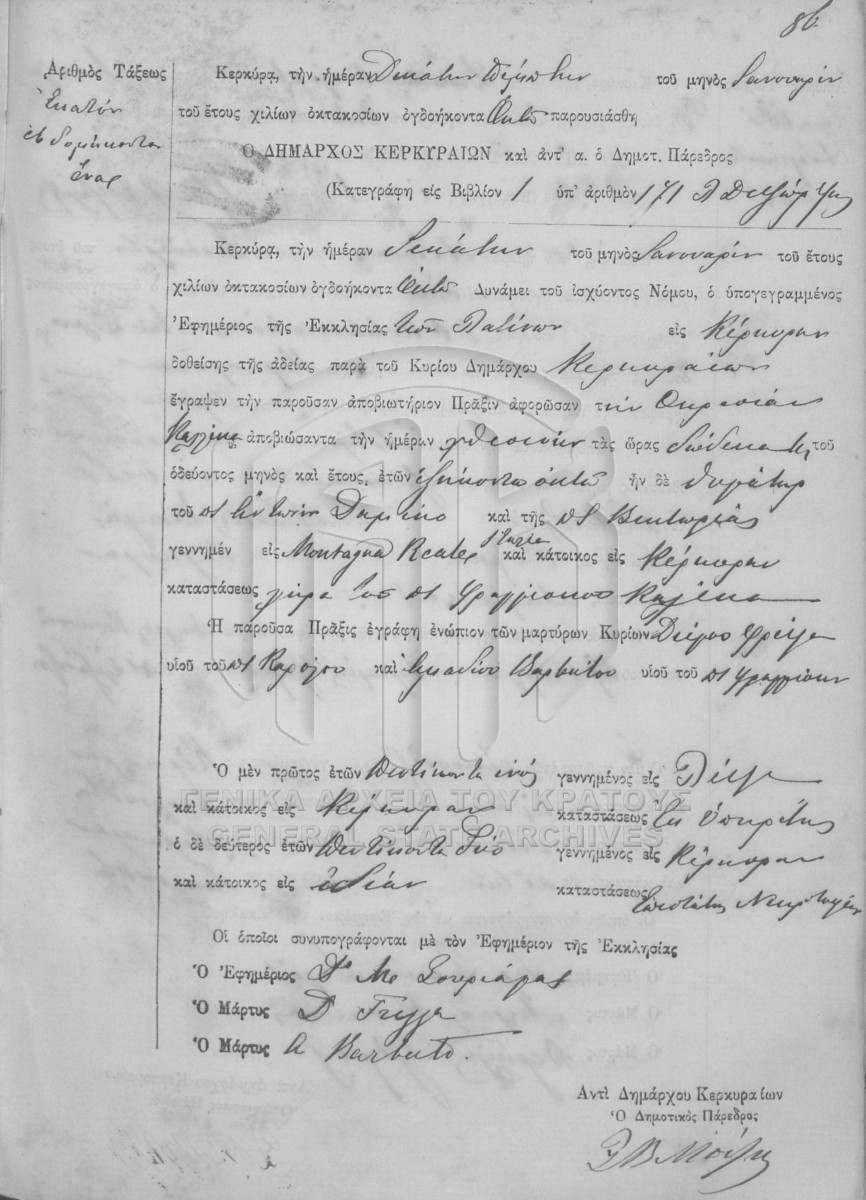 86
Ἀριθμὸς Τάξεως
Ἑκατόν
ἑβδομήκοντα
ἕνας
Κερκύρα, τὴν ἡμέραν Δεκάτην Πέμπτην τοῦ μηνὸς Ἰανουαρίου
τοῦ ἔτους χιλίων ὀκτακοσίων ὀγδοήκοντα Ὀκτὼ παρουσιάσθη
Ὁ ΔΗΜΑΡΧΟΣ ΚΕΡΚΥΡΑΙΩΝ καὶ ἀντ' α. ὁ Δημοτ. Πάρεδρος
(Κατεγράφη εἰς Βιβλίον 1 ὑπ' ἀριθμὸν 171
Κερκύρα, τὴν ἡμέραν Δεκάτην τοῦ μηνὸς Ἰανουαρίου τοῦ ἔτους
χιλίων ὀκτακοσίων ὀγδοήκοντα Ὀκτὼ Δυνάμει τοῦ ἰσχύοντος Νόμου, ὁ ὑπογεγραμμένος
Ἐφημέριος τῆς Ἐκκλησίας τῶν Λατίνων εἰς Κέρκυραν
δοθείσης τῆς ἀδείας παρὰ τοῦ Κυρίου Δημάρχου Κερκυραίων
ἔγραψεν τὴν παροῦσαν ἀποβιωτήριον Πρᾶξιν ἀφορῶσαν τὴν
ἀποβιώσαντα τὴν ἡμέραν χθεσινὴν τὰς ὥρας δώδεκα τοῦ
ὁδεύοντος μηνὸς καὶ ἔτους, ἐτῶν ἑξήκοντα ὀκτὼ ἦν δὲ θυγάτηρ
τοῦ πτ Ἀντωνίου καὶ τῆς πτ Βικτωρίας
γεννημέν εἰς Montagna Reale Ιταλία καὶ κάτοικος εἰς Κέρκυραν
καταστάσεως χήρα τοῦ πτ Φραγγίσκου
Ἡ παροῦσα Πρᾶξις ἐγράφη ἐνώπιον τῶν μαρτύρων Κυρίων
υἱοῦ τοῦ πτ Καρόλου καὶ Βαρβάτου υἱοῦ τοῦ πτ Φραγγίσκου
Ὁ μὲν πρῶτος ἐτῶν Πεντήκοντα ἑνός γεννημένος εἰς
καὶ κάτοικος εἰς Κέρκυραν καταστάσεως ὑπηρέτης
ὁ δὲ δεύτερος ἐτῶν Πεντήκοντα δύο γεννημένος εἰς Κέρκυραν
καὶ κάτοικος εἰς ἰδίαν καταστάσεως Ἐπιστάτης
Οἱ ὁποῖοι συνυπογράφονται μὲ τὸν Ἐφημέριον τῆς Ἐκκλησίας
Ὁ Ἐφημέριος
Ὁ Μάρτυς
Ὁ Μάρτυς A Barbato.
Ἀντὶ Δημάρχου Κερκυραίων
Ὁ Δημοτικὸς Πάρεδρος
ΓΕΝΙΚΑ ΑΡΧΕΙΑ ΤΟΥ ΚΡΑΤΟΥΣ
GENERAL STATE ARCHIVES